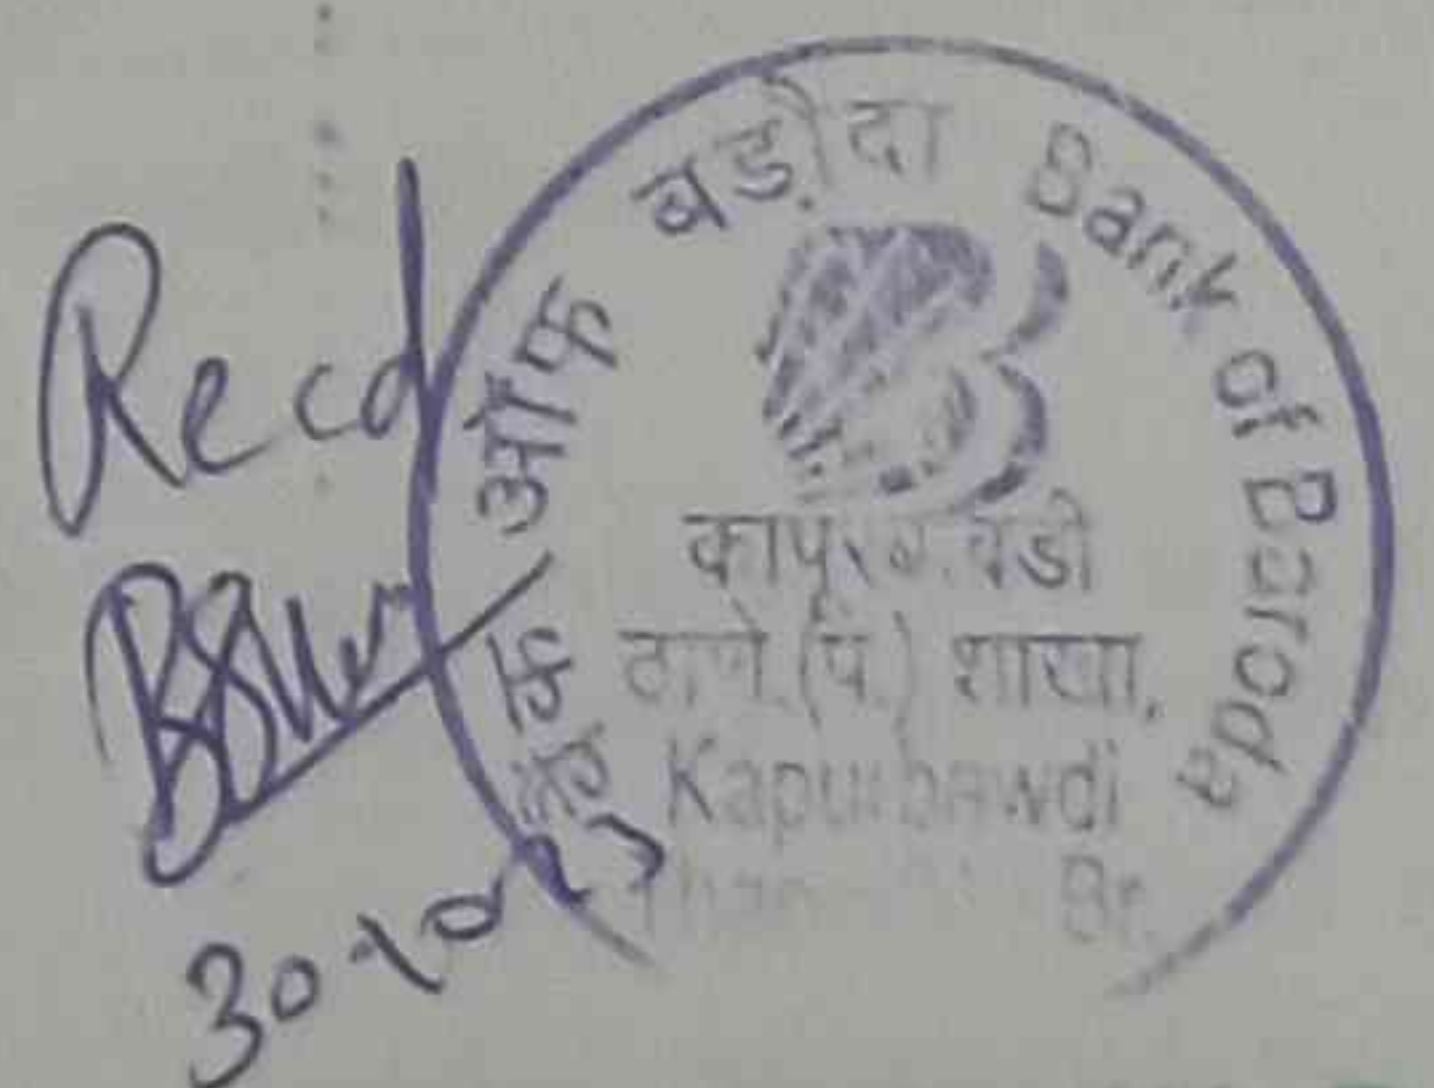 Recd
बैंक ऑफ बड़ौदा Bank of Baroda
कापूरबावडी
ठाणे (प.) शाखा,
Kapurbawdi
Br.